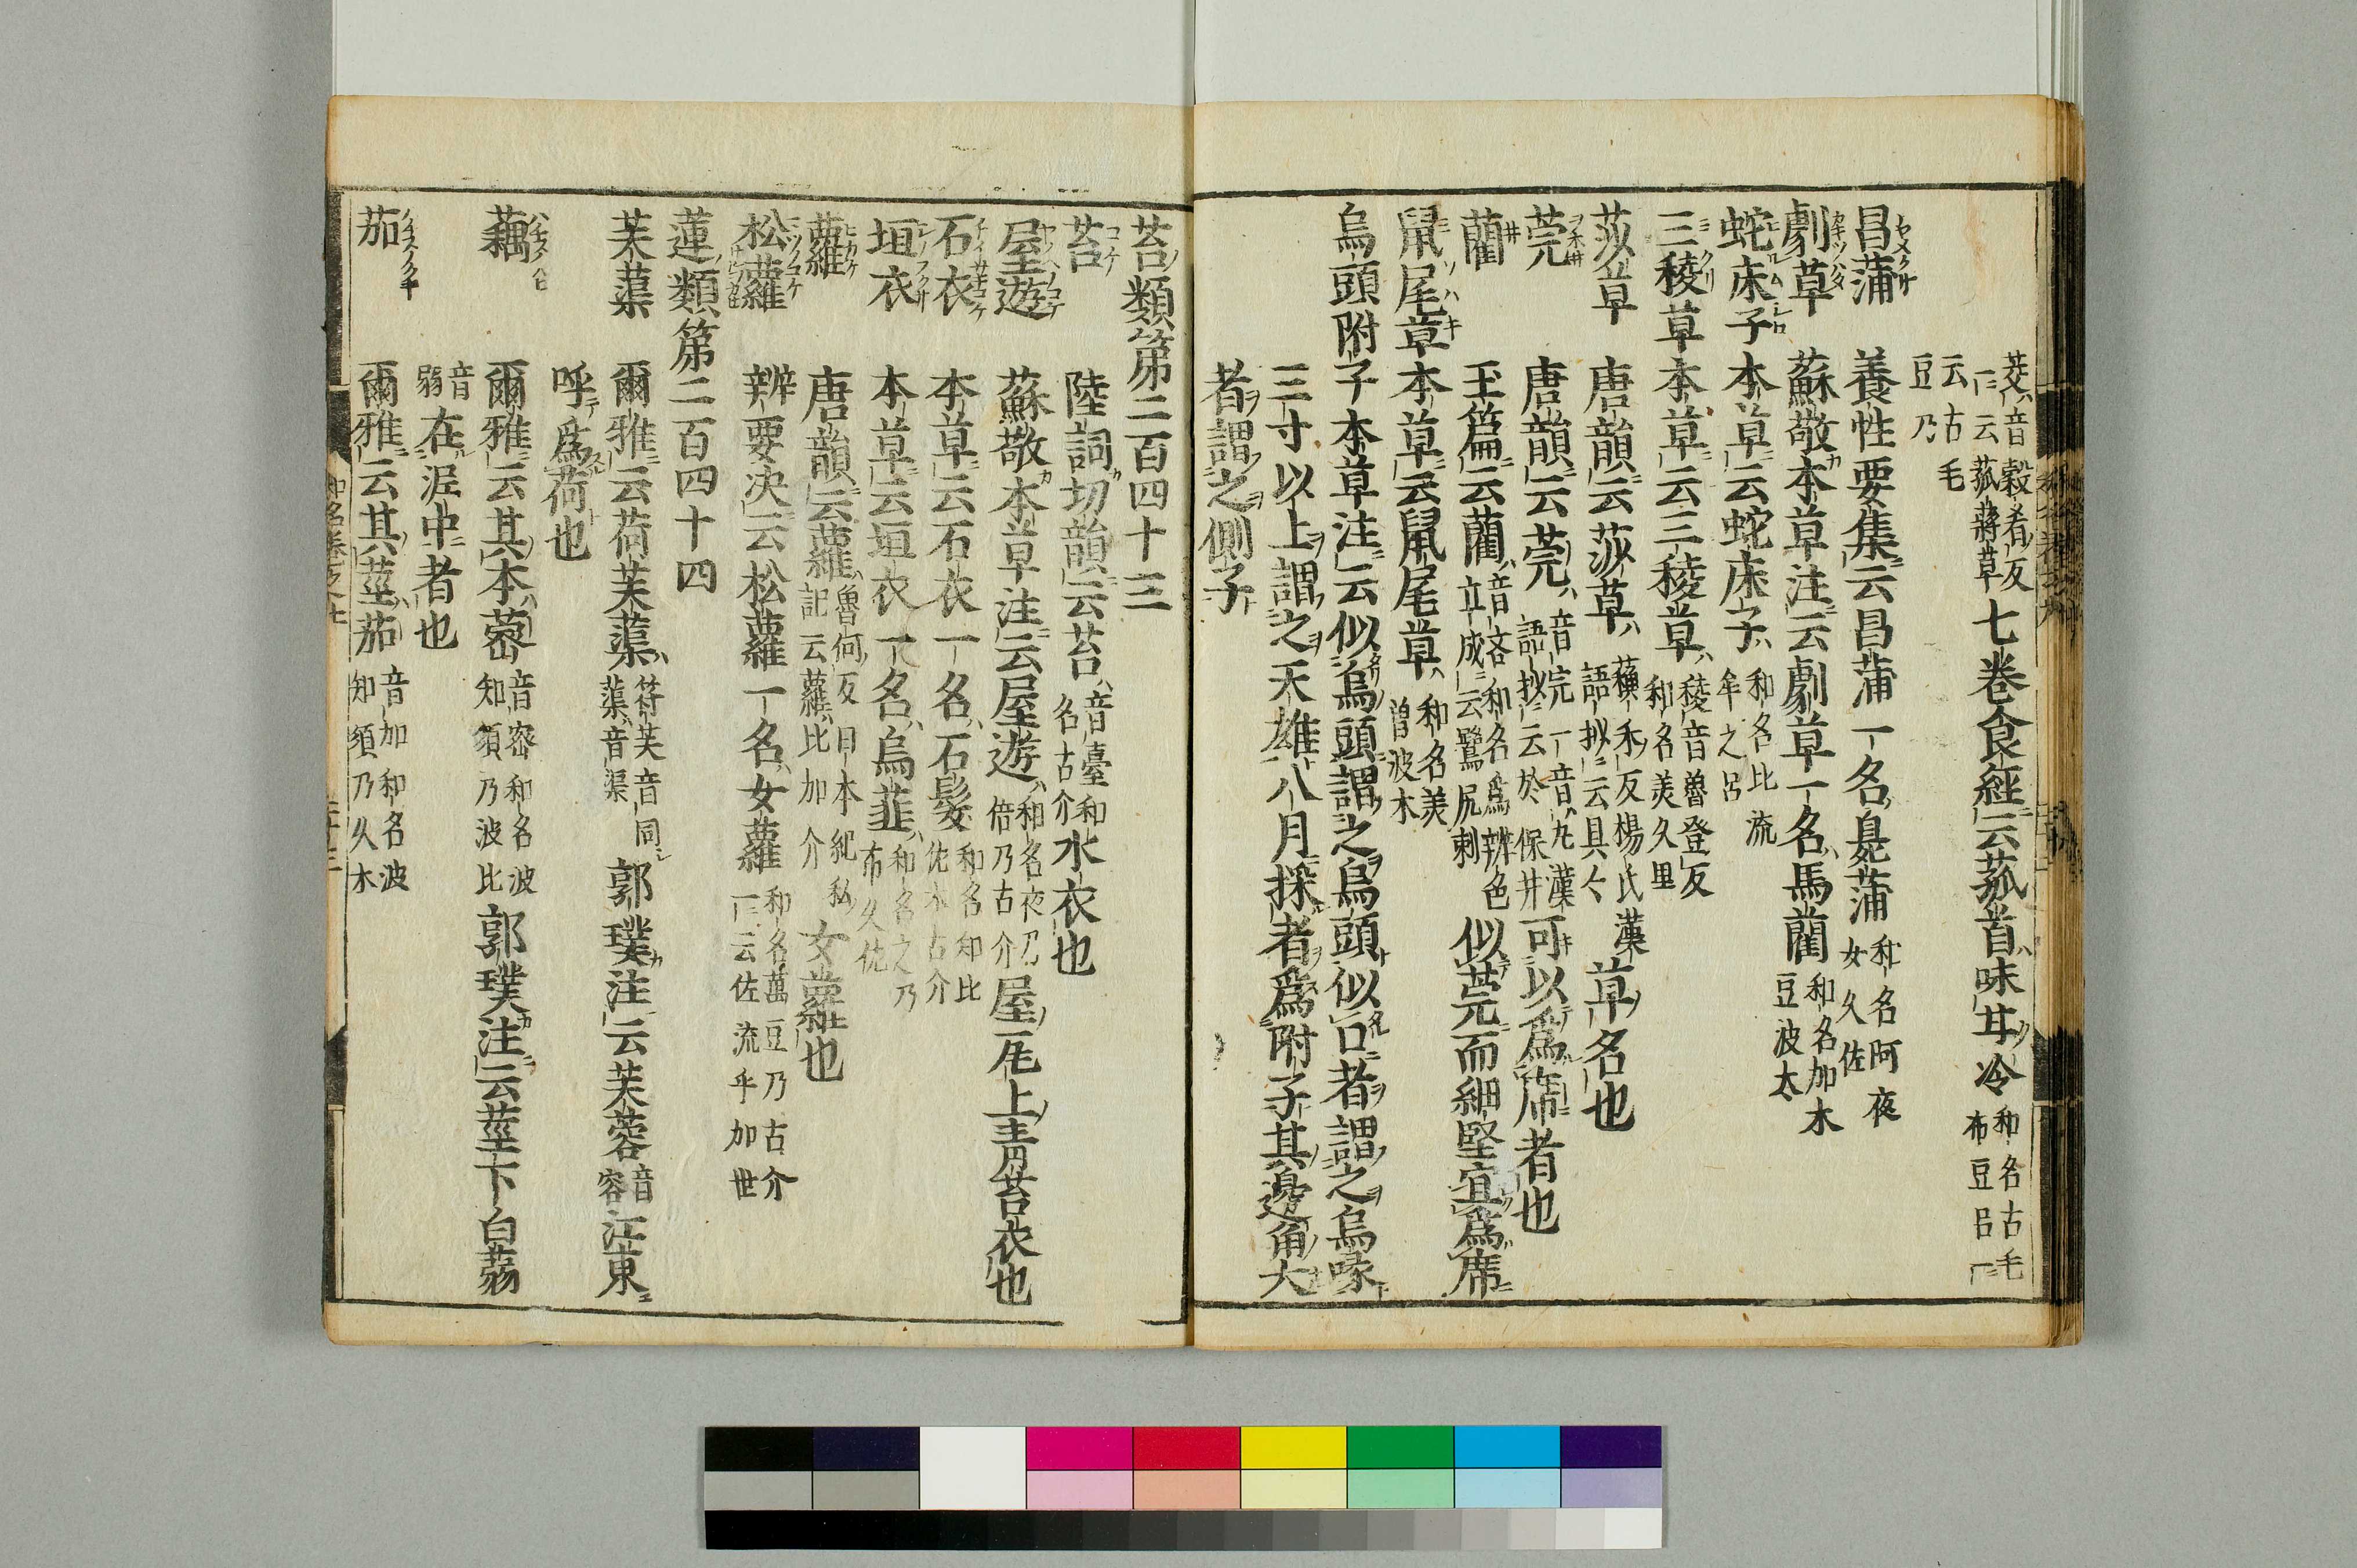 茭音穀肴反一云菰蔣草七巻食經云菰首味甘冷和名古毛布豆呂一
云古毛豆乃
昌蒲 養性要集云昌蒲一名臰蒲和名阿夜女久佐
劇草 蘇敬本草注云劇草一名馬藺和名加木豆波太
蛇床子 本草云蛇床子和名比流牟之呂
三稜草 本草云三稜草稜音魯登反和名美久里
莎草 唐韻云莎草蘓禾反楊氏漢語抄云具久草名也
莞 唐韻云莞音完一音丸漢語抄云於保井可以爲席者也
藺 玉篇云藺音吝和名爲辨色立成云鷺尻刺似莞而細堅宜爲席
鼠尾草 本草云鼠尾草和名美曽波木
烏頭附子 本草注云似烏頭謂之烏頭似口者謂之烏喙
三寸以上謂之天雄八月採者爲附子其邊角大
者謂之側子
苔類第二百四十三
苔 陸詞切韻云苔音臺和名古介水衣也
屋遊 蘇敬本草注云屋遊和名夜乃倍乃古介屋瓦上青苔衣也
石衣 本草云石衣一名石髮和名知比佐木古介
垣衣 本草云垣衣一名烏韮和名之乃布久佐
蘿 唐韻云蘿魯何反日本紀私記云蘿比加介女蘿也
松蘿 辨要决云松蘿一名女蘿和名萬豆乃古介一云佐流乎加世
蓮類第二百四十四
芙蕖 爾雅云荷芙蕖符芙音同蕖音渠郭璞注云芙蓉音容江東
呼爲荷也
藕 爾雅云其本蔤音密和名波知須乃波比郭璞注云莖下白蒻
音弱在泥中者也
茄 爾雅云其莖茄音加和名波知須乃久木